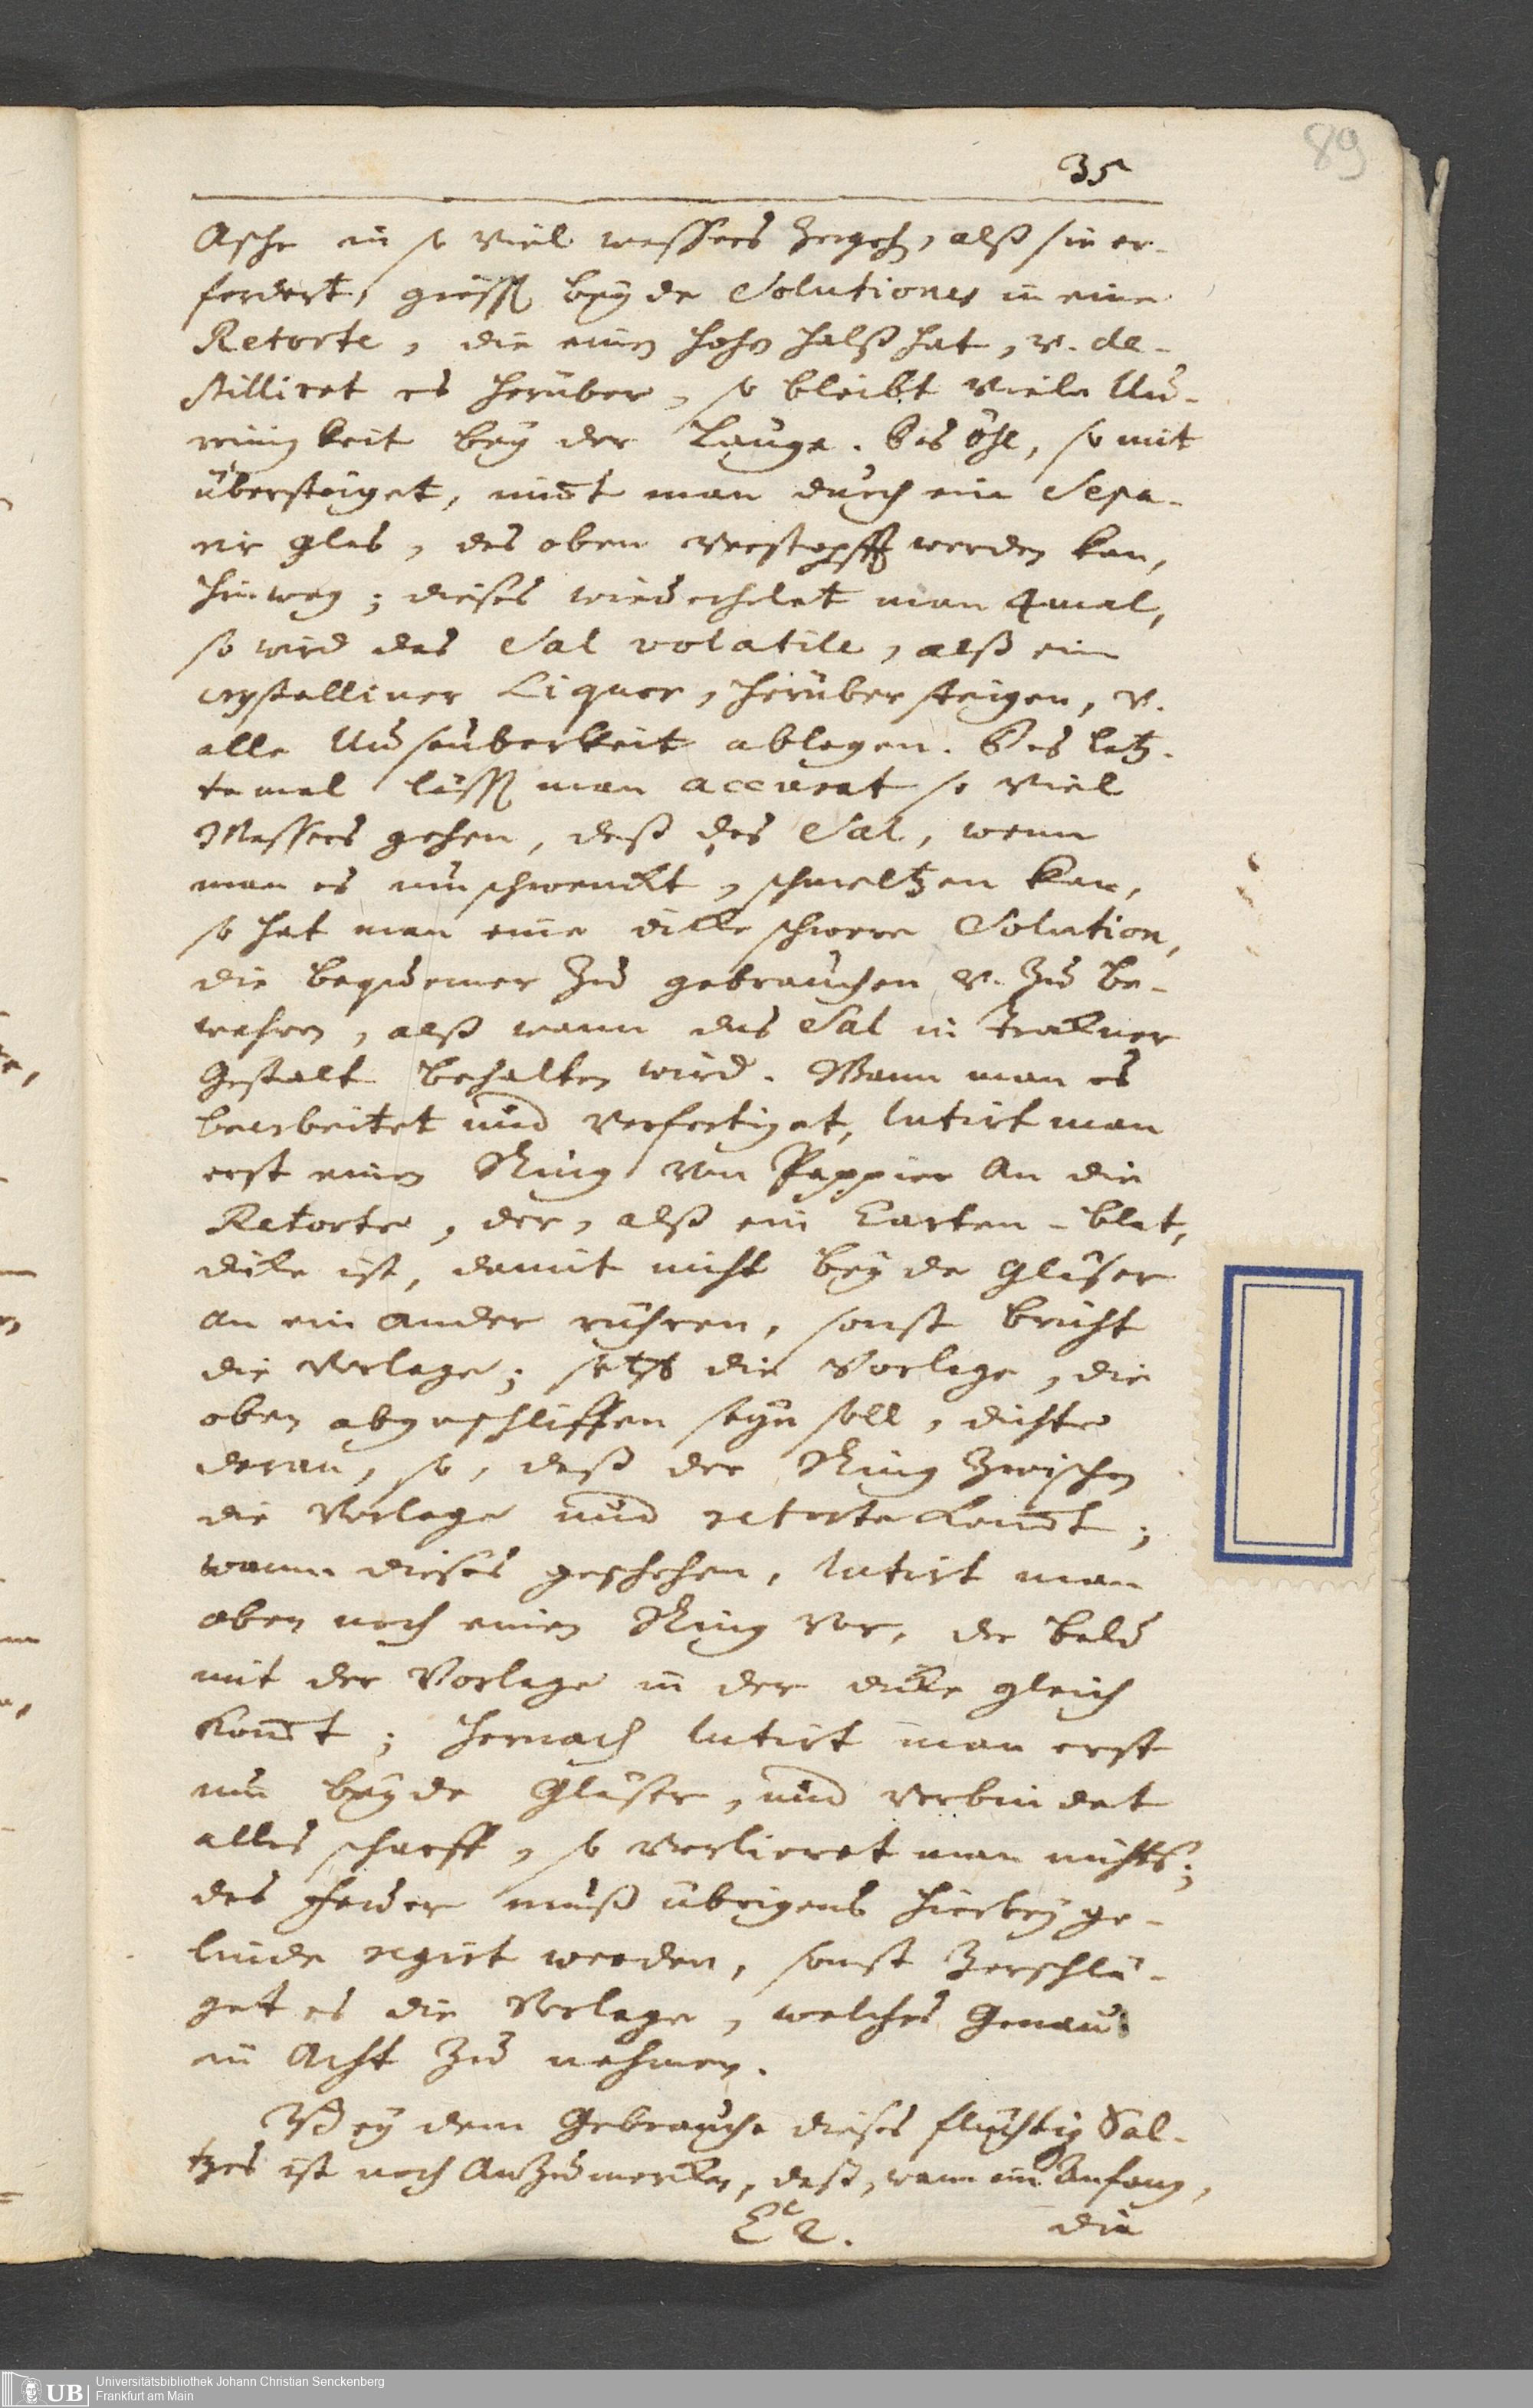 89
35
Asche in so viel wassers zergehen, alß sie er-
fordert, giesst beyde Solutiones in eine
Retorte, die einen hohen halß hat, v. de-
stilliret es herüber, so bleibt viele Un-
reinigkeit bey der Lauge. Das öhl, so mit
übersteiget, nimt man durch ein Sepa-
rir glas, das oben verstopfft werden kan,
hinweg; dieses wiederholet man 4mal,
so wird das Sal volatile, alß ein
crystalliner Liquor, herüber steigen, v.
alle Unsauberkeit ablegen. Das letz-
te mal lässt man accurat so viel
Wassers gehen, daß das Sal, wenn
man es umschwenckt, schmeltzen kan,
so hat man eine dicke schwere Solution,
die bequemer zu gebrauchen v. zu be-
wahren, alß wann das Sal in trockner
Gestalt behalten wird. Wann man es
bearbeitet und verfertiget, lutirt man
erst einen Ring von Pappier an die
Retorte, der, alß ein Carten-blat,
dicke ist, damit nicht beyde Gläser
an ein ander rühren, sonst bricht
die Vorlage; setzt die Vorlage, die
oben abgeschliffen seyn soll, dichte
daran, so, daß der Ring zwischen
die Vorlage und retorte kommt;
wann dieses geschehen, lutirt man
oben noch einen Ring vor, der bald
mit der Vorlage in der dicke gleich
kommt; hernach lutirt man erst
um beyde Gläser, und verbindet
alles scharff, so verlieret man nichts;
das Feuer muß übrigens hierbey ge-
linde regirt werden, sonst zerschlä-
get es die Vorlage, welches Genau
in Acht zu nehmen.
Bey dem Gebrauche dieses flüchtigen Sal-
tzes ist noch anzumercken, daß, wann im Anfang,
die
UB Universitätsbibliothek Johann Christian Senckenberg
Frankfurt am Main